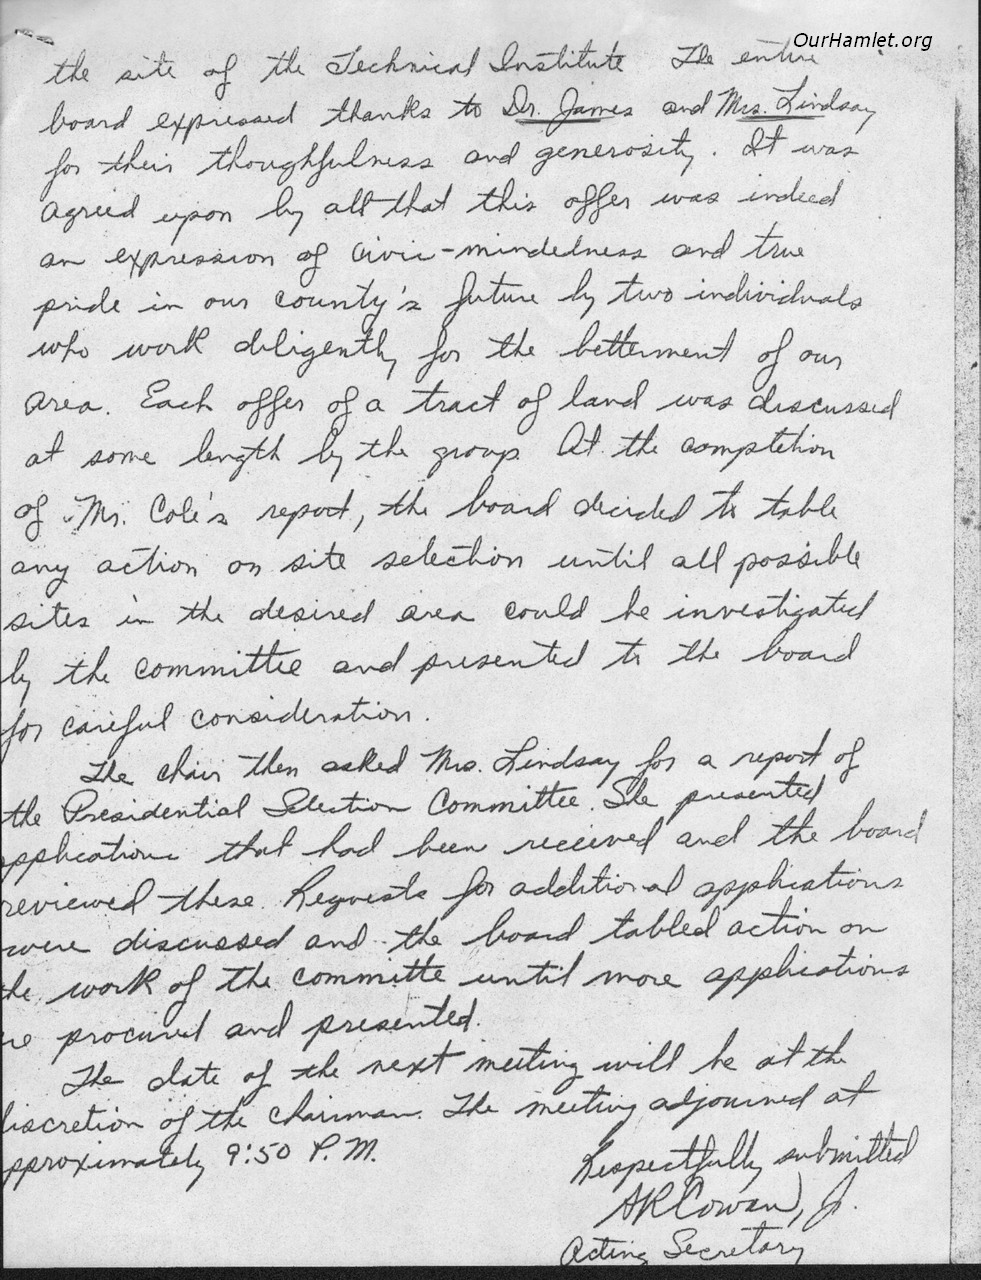 OurHamlet.org
the site of the Technical Institute The entire
board expressed thanks to Dr. James and Mrs. Lindsay
for their thoughtfulness and generosity. It was
agreed upon by all that this offer was indeed
an expression of civic-mindedness and true
pride in our county's future by two individuals
who work diligently for the betterment of our
area. Each offer of a tract of land was discussed
at some length by the group. At the completion
of Mr. Cole's report, the board decided to table
any action on site selection until all possible
sites in the desired area could be investigated
by the committee and presented to the board
for careful consideration.
The chair then asked Mrs. Lindsay for a report of
the Presidential Selection Committee. She presented
pplications that had been received and the board
reviewed these. Requests for additional applications
were discussed and the board tabled action on
the work of the committe until more applications
re procured and presented.
The date of the next meeting will be at the
discretion of the chairman. The meeting adjourned at
pproximately 9:50 P.M.
Respectfully submitted
AR Cowan, Jr.
Acting Secretary